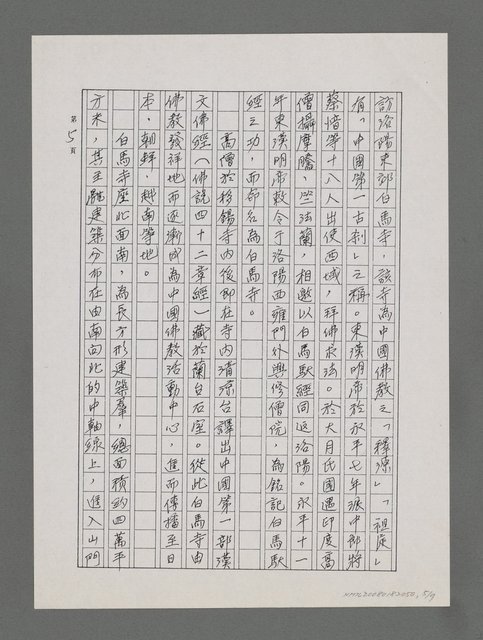 訪洛陽東郊白馬寺，該寺為中國佛教之「釋源」「祖庭」
有「中國第一古剎」之稱。東漢明帝於永平七年派中郎將
蔡愔等十八人出使西域，拜佛求法。於大月氏國遇印度高
僧攝摩騰、竺法蘭，相邀以白馬馱經同返洛陽。永平十一
年東漢明帝敕令于洛陽西雍門外興修僧院，為銘記白馬馱
經之功，而命名為白馬寺。
高僧於移錫寺內後即在寺內清涼台譯出中國第一部漢
文佛經（佛說四十二章經）藏於蘭台石座。從此白馬寺由
佛教發祥地而逐漸成為中國佛教活動中心，進而傳播至日
本，朝鮮，越南等地。
白馬寺座北面南，為長方形建築羣，總面積約四萬平
方米，其主體建築分布在由南向北的中軸線上，進入山門
第5頁
NMTL20080182050, 5/9